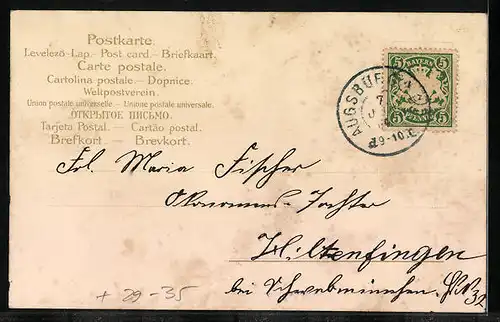 Postkarte.
Levelező-Lap. - Post card. - Briefkaart.
Carte postale.
Cartolina postale. - Dopnice.
Weltpostverein.
Union postale universelle. - Unione postale universale.
ОТКРЫТОЕ ПИСЬМО.
Tarjeta Postal. - Cartão postal.
Brefkort - Brevkort.
BAYERN
5 5
5 PFENNIG 5
AUGSBURG
7
9-10
Frl. Maria Fischer
Ökonomens-Tochter
Hiltenfingen
bei Schwabmünchen.
+ 29-35